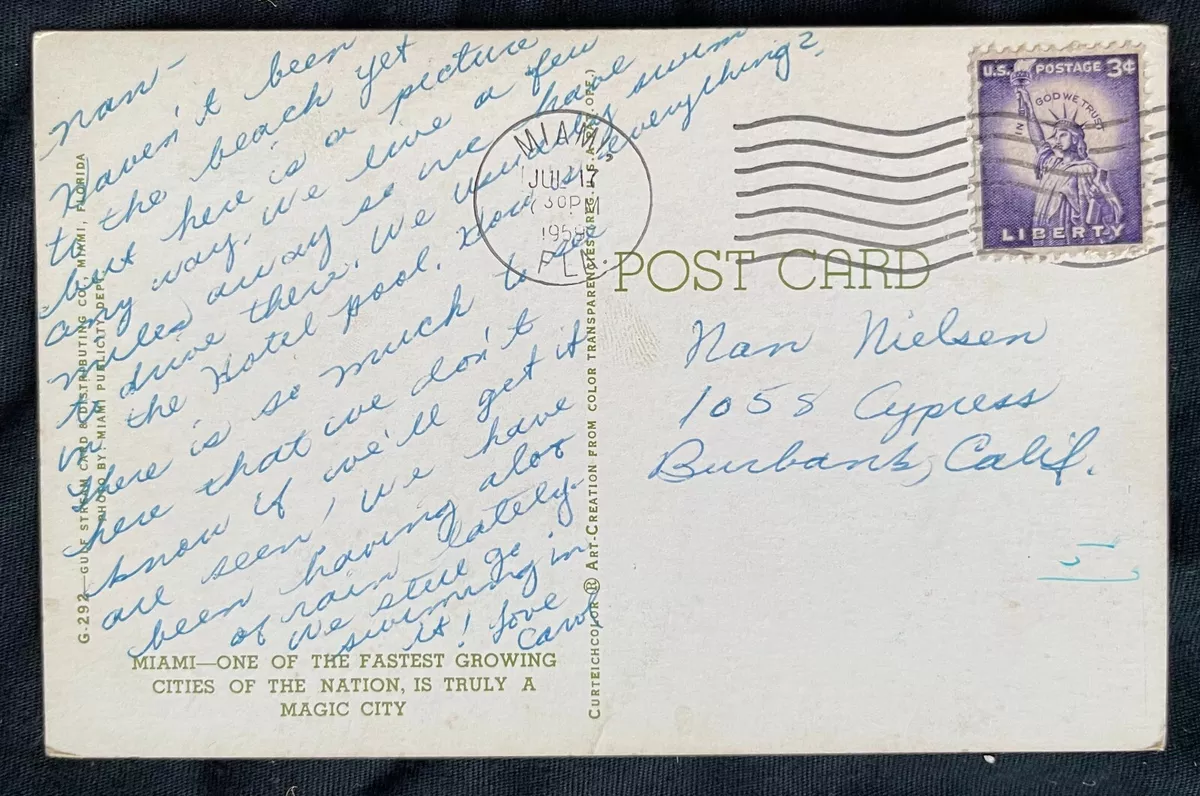 Nan -
Haven't been
to the beach yet
but here is a picture
any way. We live a few
miles away so we have
to drive there. We usually swim
in the Hotel pool. How is everything?
There is so much to see
here that we don't
know if we'll get it
all seen! We have
been having alot
of rain lately.
We still go
swimming in
it! Love
Carol
MIAMI—ONE OF THE FASTEST GROWING
CITIES OF THE NATION, IS TRULY A
MAGIC CITY
G-292—GULF STREAM CARD & DISTRIBUTING CO., MIAMI, FLORIDA
PHOTO BY MIAMI PUBLICITY DEPT.
CURTEICHCOLOR ® ART-CREATION FROM COLOR TRANSPARENCIES (REG. U.S.A. PAT. OFF.)
MIAMI,
JUL 17
30PM
1958
FLA.
U.S. POSTAGE 3¢
IN GOD WE TRUST
LIBERTY
POST CARD
Nan Nielsen
1058 Cypress
Burbank, Calif.